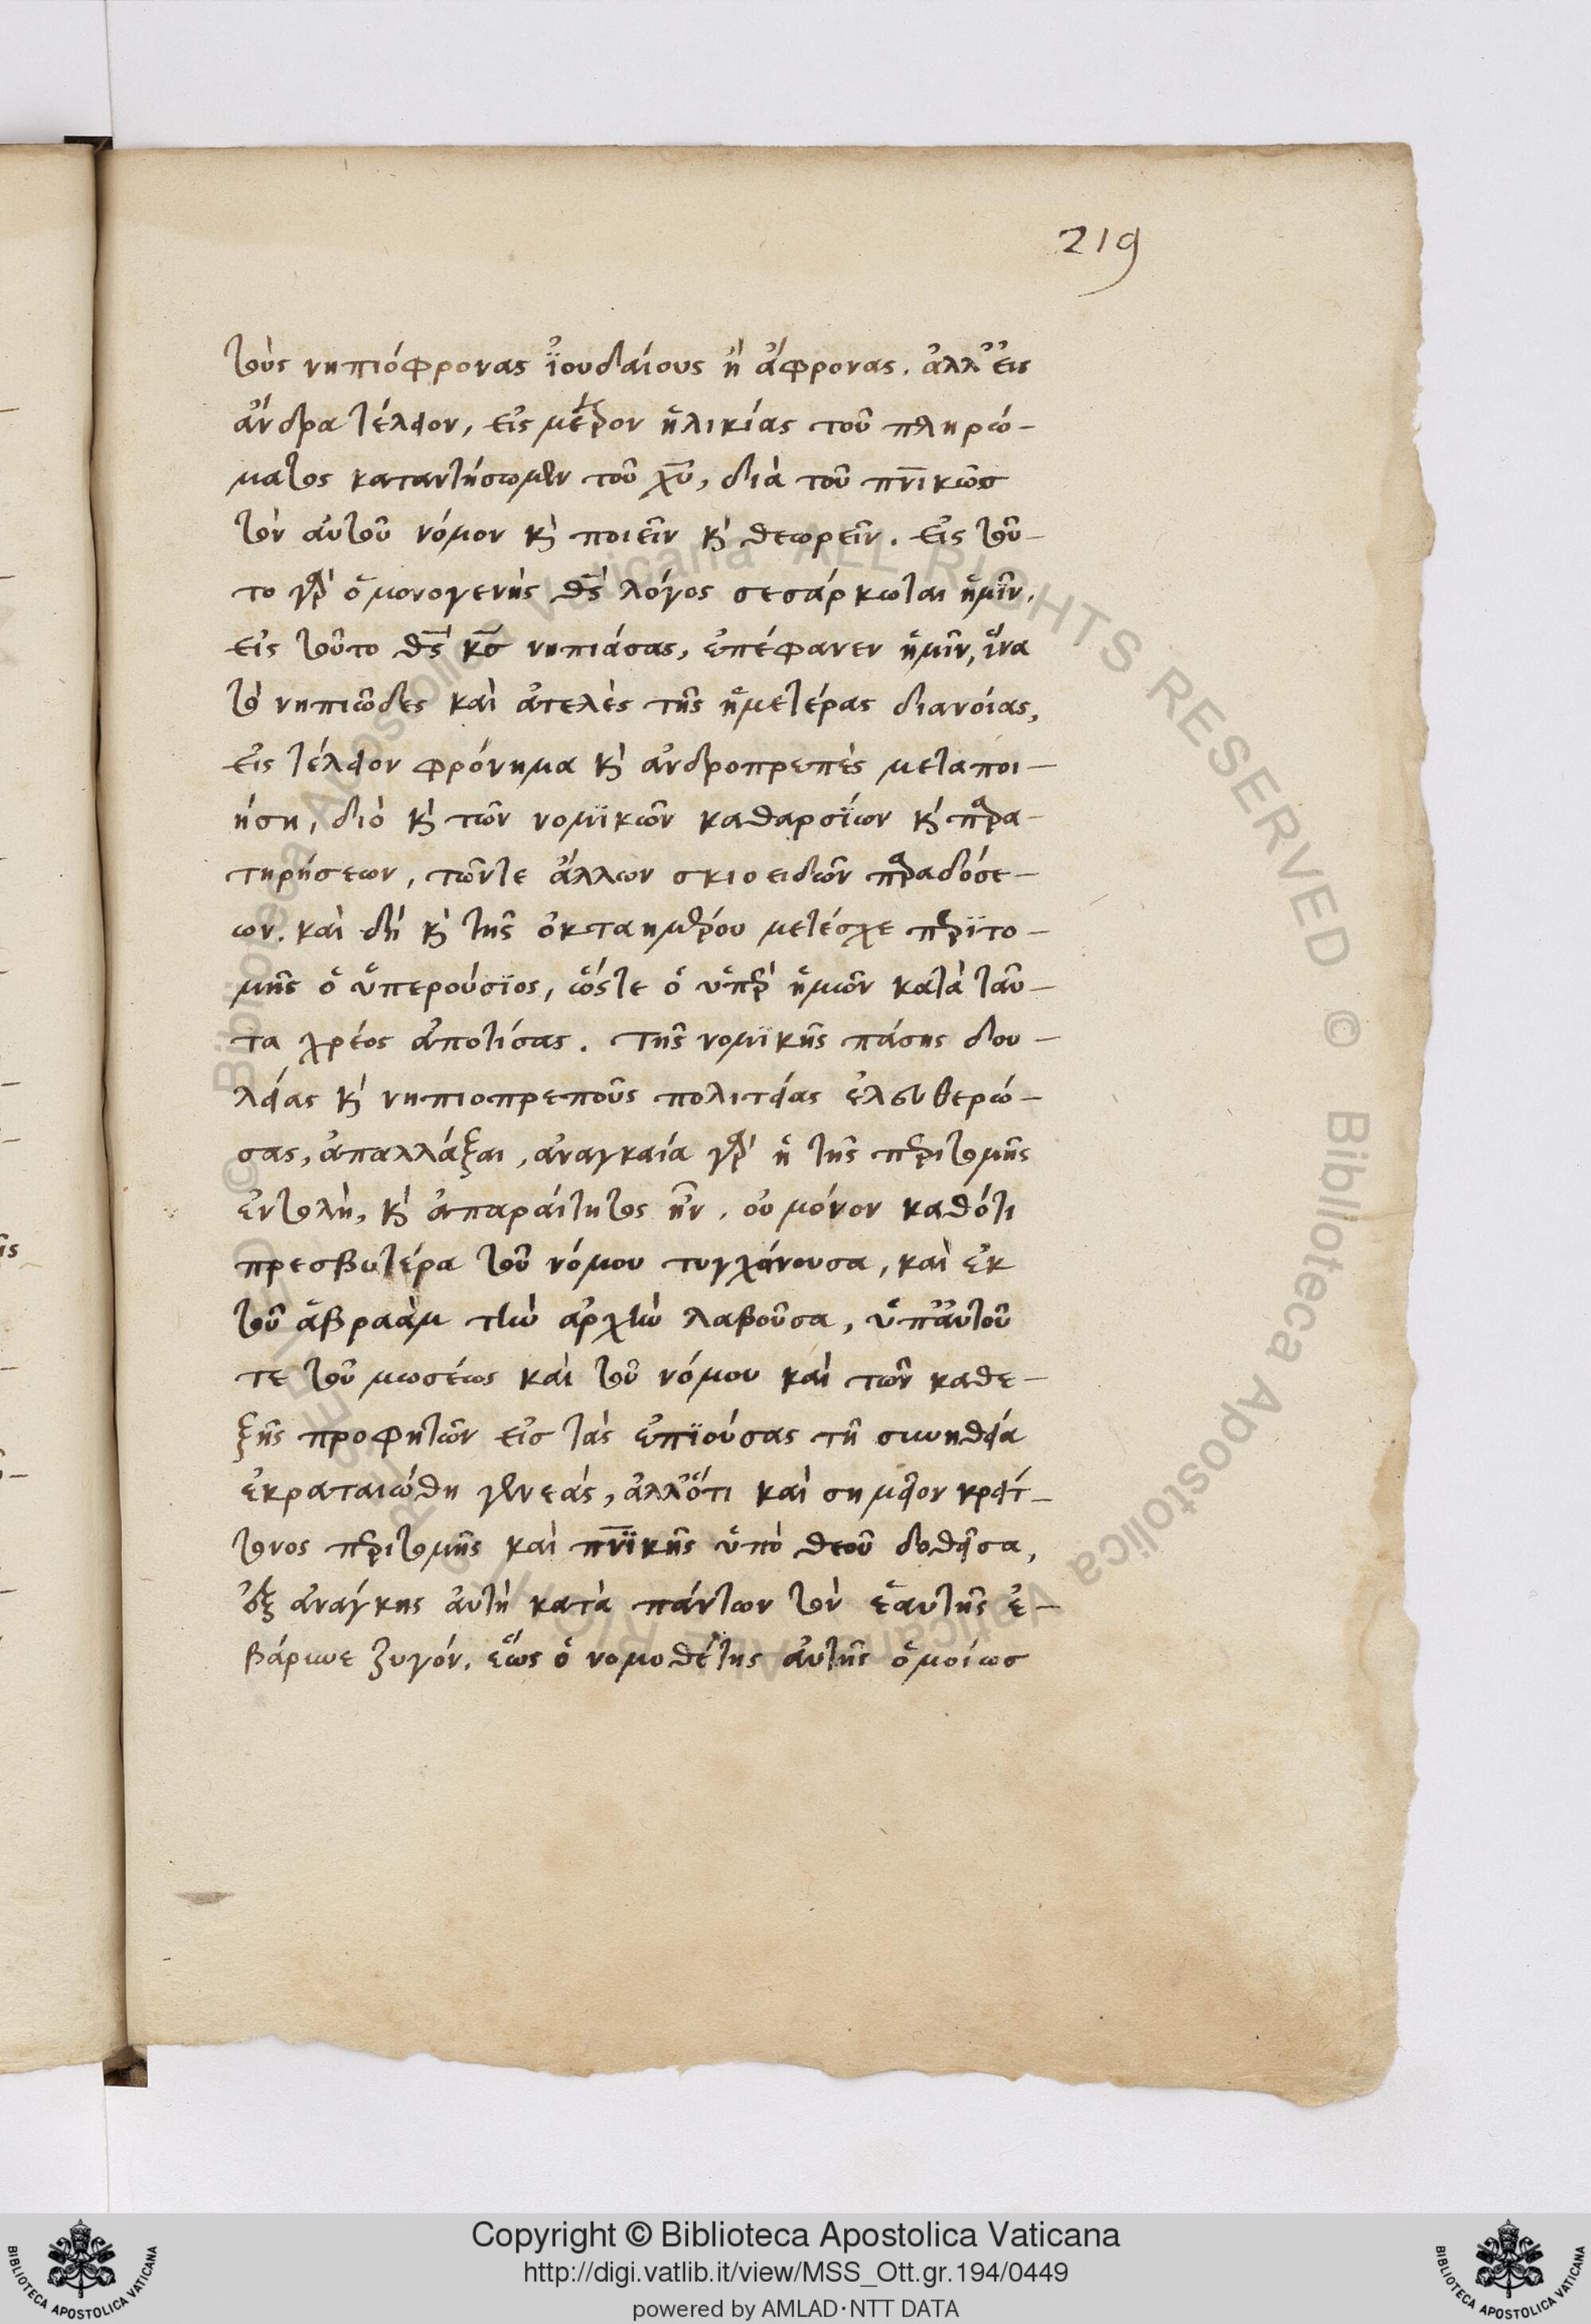 219
τοὺς νηπιόφρονας ἰουδαίους ἢ ἄφρονας. ἀλλ' εἰς
ἄνδρα τέλειον, εἰς μέτρον ἡλικίας τοῦ πληρώ-
ματος καταντήσωμεν τοῦ χ̅υ̅, διὰ τοῦ πν̅ικῶς
τὸν αὐτοῦ νόμον κὶ ποιεῖν κὶ θεωρεῖν. εἰς τοῦ-
το γὰρ ὁ μονογενὴς θ̅ς̅ λόγος σεσάρκωται ἡμῖν.
εἰς τοῦτο θ̅ς̅ κ̅ς̅ νηπιάσας, ἐπέφανεν ἡμῖν, ἵνα
τὸ νηπιῶδες καὶ ἀτελὲς τῆς ἡμετέρας διανοίας,
εἰς τέλειον φρόνημα κὶ ἀνδροπρεπὲς μεταποι-
ήση, διὸ κὶ τῶν νομϊκῶν καθαρσΐων κὶ παρα-
τηρήσεων, τῶντε ἄλλων σκιοειδῶν παραδόσε-
ων. καὶ δὴ κὶ τῆς ὀκταημέρου μετέσχε περϊτο-
μῆς ὁ ὑπερούσϊος, ὥστε ὁ ὑπὲρ ἡμῶν κατὰ ταῦ-
τα χρέος ἀποτίσας. τῆς νομϊκῆς πάσης δου-
λείας κὶ νηπιοπρεποῦς πολιτείας ἐλευθερώ-
σας, ἀπαλλάξαι, ἀναγκαία γὰρ ἡ τῆς περιτομῆς
ἐντολὴ, κὶ ἀπαραίτητος ἦν. οὐ μόνον καθότι
πρεσβυτέρα τοῦ νόμου τυγχάνουσα, καὶ ἐκ
τοῦ ἁβραὰμ τὴν ἀρχὴν λαβοῦσα, ὑπ' αὐτοῦ
τε τοῦ μωσέως καὶ τοῦ νόμου καὶ τῶν καθε-
ξῆς προφητῶν εἰς τὰς ἐπϊούσας τῆ συνηθεία
ἐκραταιώθη γενεάς, ἀλλ' ὅτι καὶ σημεῖον κρείτ-
τονος περιτομῆς καὶ πν̅ϊκῆς ὑπὸ θεοῦ δοθεῖσα,
ἐξ ἀνάγκης αὐτὴ κατὰ πάντων τὸν ἑαυτῆς ἐ-
βάρυνε ζυγόν. ἕως ὁ νομοθέτης αὐτῆς ὁμοίως
© Biblioteca Apostolica Vaticana ALL RIGHTS RESERVED © Biblioteca Apostolica Vaticana ALL RIGHTS RESERVED
Copyright © Biblioteca Apostolica Vaticana
http://digi.vatlib.it/view/MSS_Ott.gr.194/0449
powered by AMLAD·NTT DATA
BIBLIOTECA APOSTOLICA VATICANA
BIBLIOTECA APOSTOLICA VATICANA